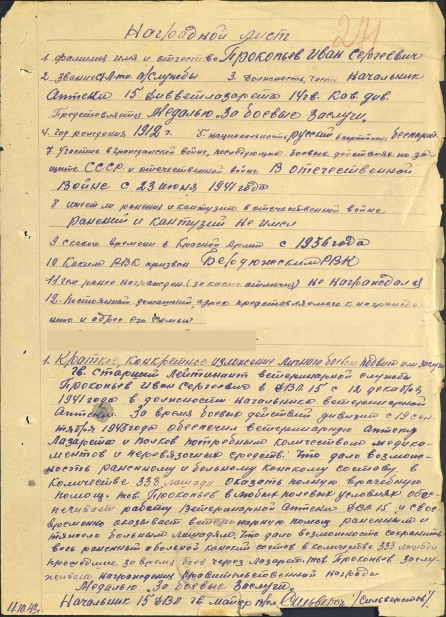 Наградной лист
271
1. Фамилия имя и отчество Прокопьев Иван Сергеевич
2. Звание Ст. Л-нт. в/службы 3. Должность, часть Начальник
Аптеки 15 Дивветлазарета 14гв. Кав. див.
Представляется Медалью "За боевые Заслуги"
4. год рождения 1918 г. 5. национальность русский 6 партийн беспарт.
7. Участие в гражданской войне, последующих боевых действиях по за-
щите СССР и отечественной войне В Отечественной
Войне с 23 июня 1941 года
8 имеет ли ранения и контузии в отечественной войне
Ранений и кантузий не имел
9 с какого времени в Красной Армии с 1936 года
10 Каким РВК призван Бердюжским РВК
11 Чем ранее награжден (за какие отличия) не награждался
12. Постоянный домашний адрес представляемого к награжде-
нию и адрес его семьи
1. Краткое, конкретное изложение личного боевого подвига или заслуг
Гв Старший Лейтенант ветеринарной службы
Прокопьев Иван Сергеевич в ДВЛ 15 с 12 декабря
1941 года в должности Начальника ветеринарной
Аптеки. За время боевых действий дивизии с 19 сен-
тября 1943 года обеспечил ветеринарную аптеку
Лазарета и полков потребным количеством медика-
ментов и перевязочных средств. Что дало возмож-
ность раненному и больному конскому составу в
Количестве 333 лошади Оказать полную врачебную
помощ. тов. Прокопьев в любых полевых условиях обес-
печивает работу Ветеринарной Аптеки ДВЛ 15 и свое-
временно оказывает ветеринарную помощ раненным и
тяжело больным лошадям, что дало возможность сохранить
весь раненный и больной конский состав в количестве 333 лошади
прошедшие за время боев через Лазарет. тов Прокопьев Заслу-
живает награждения правительственной награды
Медалью "За боевые Заслуги".
Начальник 15 ДВЛ гв майор в/сл Сильверстов /Сильверстов/
18.10.43г.